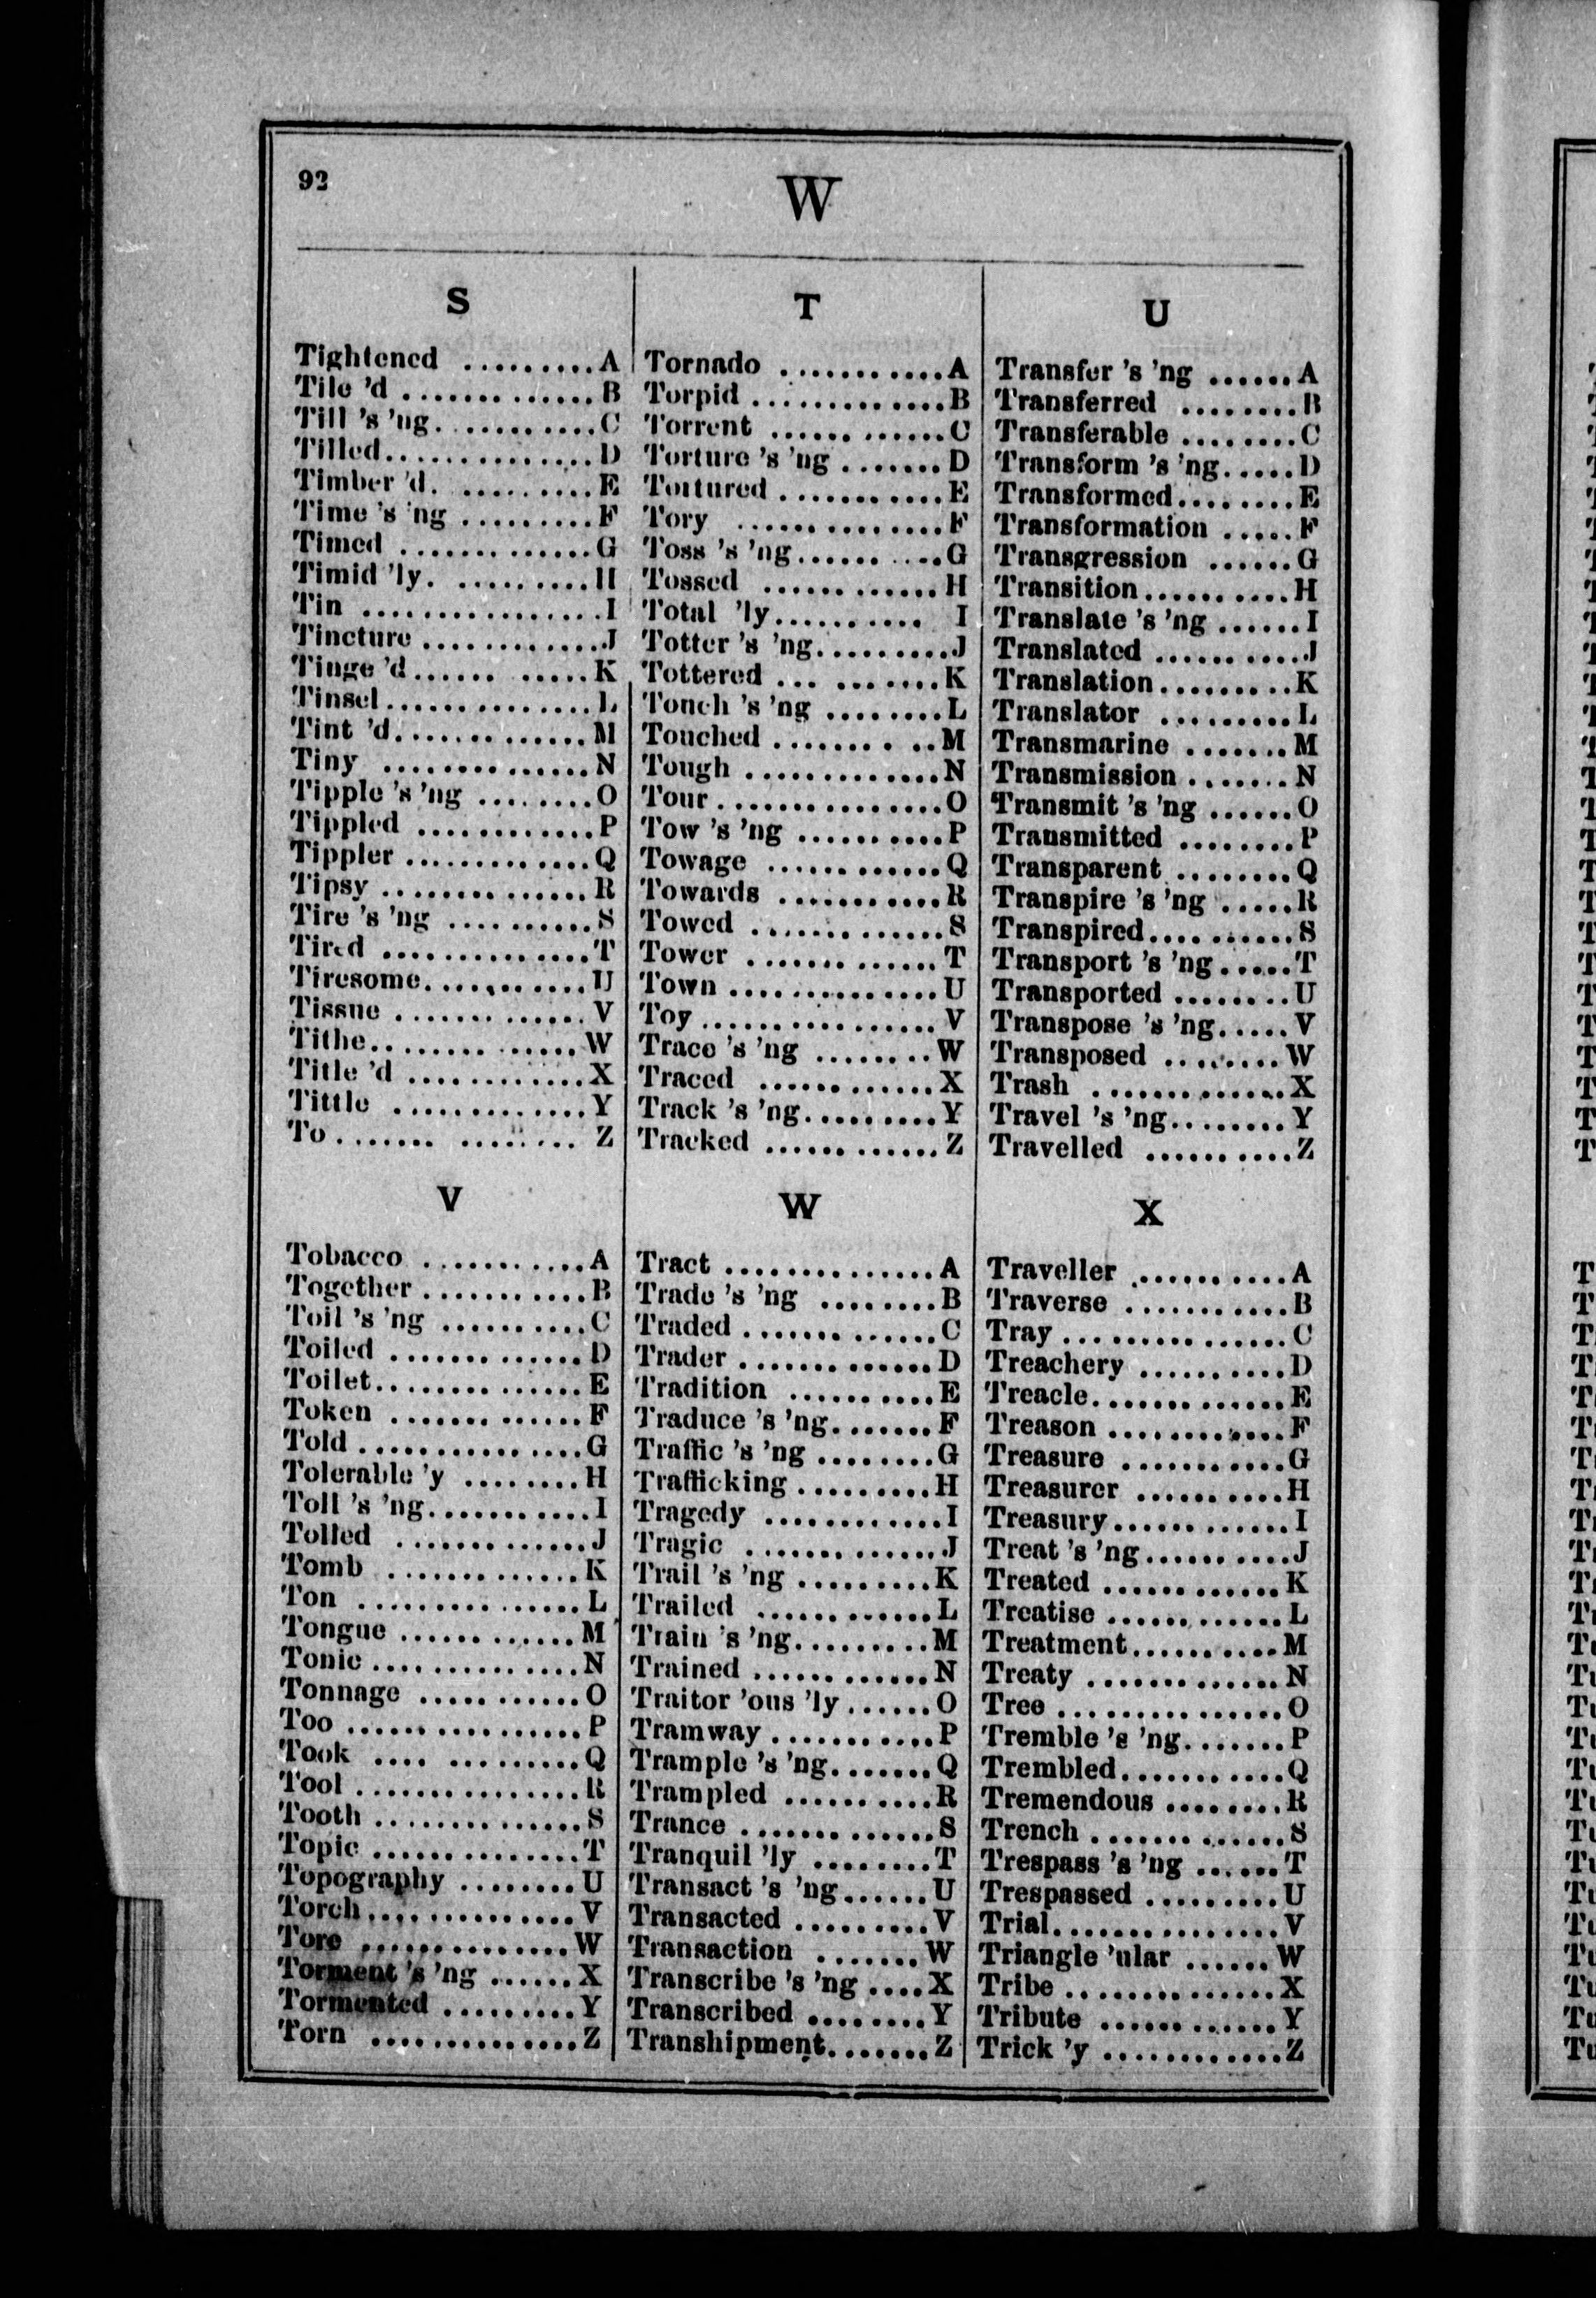 92
W
S
Tightened ......... A
Tile 'd ............. B
Till 's 'ng. .......... C
Tilled............... D
Timber 'd. ......... E
Time 's 'ng ......... F
Timed ............. G
Timid 'ly. ......... H
Tin ................. I
Tincture ............. J
Tinge 'd...... ..... K
Tinsel............... L
Tint 'd............. M
Tiny ............... N
Tipple 's 'ng ........ O
Tippled ............ P
Tippler ............. Q
Tipsy .............. R
Tire 's 'ng .......... S
Tired .............. T
Tiresome........... U
Tissue ............. V
Tithe........ ...... W
Title 'd ............ X
Tittle ............. Y
To....... ......... Z
T
Tornado ........... A
Torpid ............. B
Torrent ...... ...... C
Torture 's 'ng ....... D
Tortured ........... E
Tory ............... F
Toss 's 'ng...... .... G
Tossed ............ H
Total 'ly.......... I
Totter 's 'ng......... J
Tottered ... ....... K
Touch 's 'ng ........ L
Touched ........ . .. M
Tough ............. N
Tour................ O
Tow 's 'ng .......... P
Towage ............ Q
Towards ........... R
Towed ............. S
Tower ............. T
Town .............. U
Toy................. V
Trace 's 'ng ........ W
Traced ............ X
Track 's 'ng......... Y
Tracked ............ Z
U
Transfer 's 'ng ...... A
Transferred ........ B
Transferable ........ C
Transform 's 'ng..... D
Transformed........ E
Transformation ..... F
Transgression ...... G
Transition.......... H
Translate 's 'ng ...... I
Translated .......... J
Translation......... K
Translator ......... L
Transmarine ....... M
Transmission ....... N
Transmit 's 'ng ...... O
Transmitted ........ P
Transparent ........ Q
Transpire 's 'ng ..... R
Transpired.... ...... S
Transport 's 'ng ..... T
Transported ........ U
Transpose 's 'ng..... V
Transposed ........ W
Trash ............. X
Travel 's 'ng........ Y
Travelled .......... Z
V
Tobacco ........... A
Together ........... B
Toil 's 'ng .......... C
Toiled ............. D
Toilet.............. E
Token ............. F
Told ............... G
Tolerable 'y ........ H
Toll 's 'ng........... I
Tolled ............. J
Tomb ............. K
Ton ............... L
Tongue ............ M
Tonic .............. N
Tonnage ........... O
Too ................ P
Took .... ......... Q
Tool ............... R
Tooth .............. S
Topic .............. T
Topography ........ U
Torch.............. V
Tore .............. W
Torment 's 'ng ...... X
Tormented ......... Y
Torn .............. Z
W
Tract .............. A
Trade 's 'ng ........ B
Traded ............. C
Trader ............. D
Tradition .......... E
Traduce 's 'ng....... F
Traffic 's 'ng ........ G
Trafficking ......... H
Tragedy ............ I
Tragic ............. J
Trail 's 'ng ......... K
Trailed ............ L
Train 's 'ng......... M
Trained ............ N
Traitor 'ous 'ly ...... O
Tramway ........... P
Trample 's 'ng....... Q
Trampled .......... R
Trance ............. S
Tranquil 'ly ........ T
Transact 's 'ng...... U
Transacted ......... V
Transaction ....... W
Transcribe 's 'ng .... X
Transcribed ........ Y
Transhipment....... Z
X
Traveller .......... A
Traverse ........... B
Tray ............... C
Treachery .......... D
Treacle............. E
Treason ............ F
Treasure ........... G
Treasurer .......... H
Treasury............ I
Treat 's 'ng.......... J
Treated ............ K
Treatise ............ L
Treatment.......... M
Treaty ............. N
Tree ............... O
Tremble 's 'ng....... P
Trembled........... Q
Tremendous ........ R
Trench ............. S
Trespass 's 'ng ...... T
Trespassed ......... U
Trial............... V
Triangle 'ular ...... W
Tribe .............. X
Tribute ............ Y
Trick 'y ............ Z